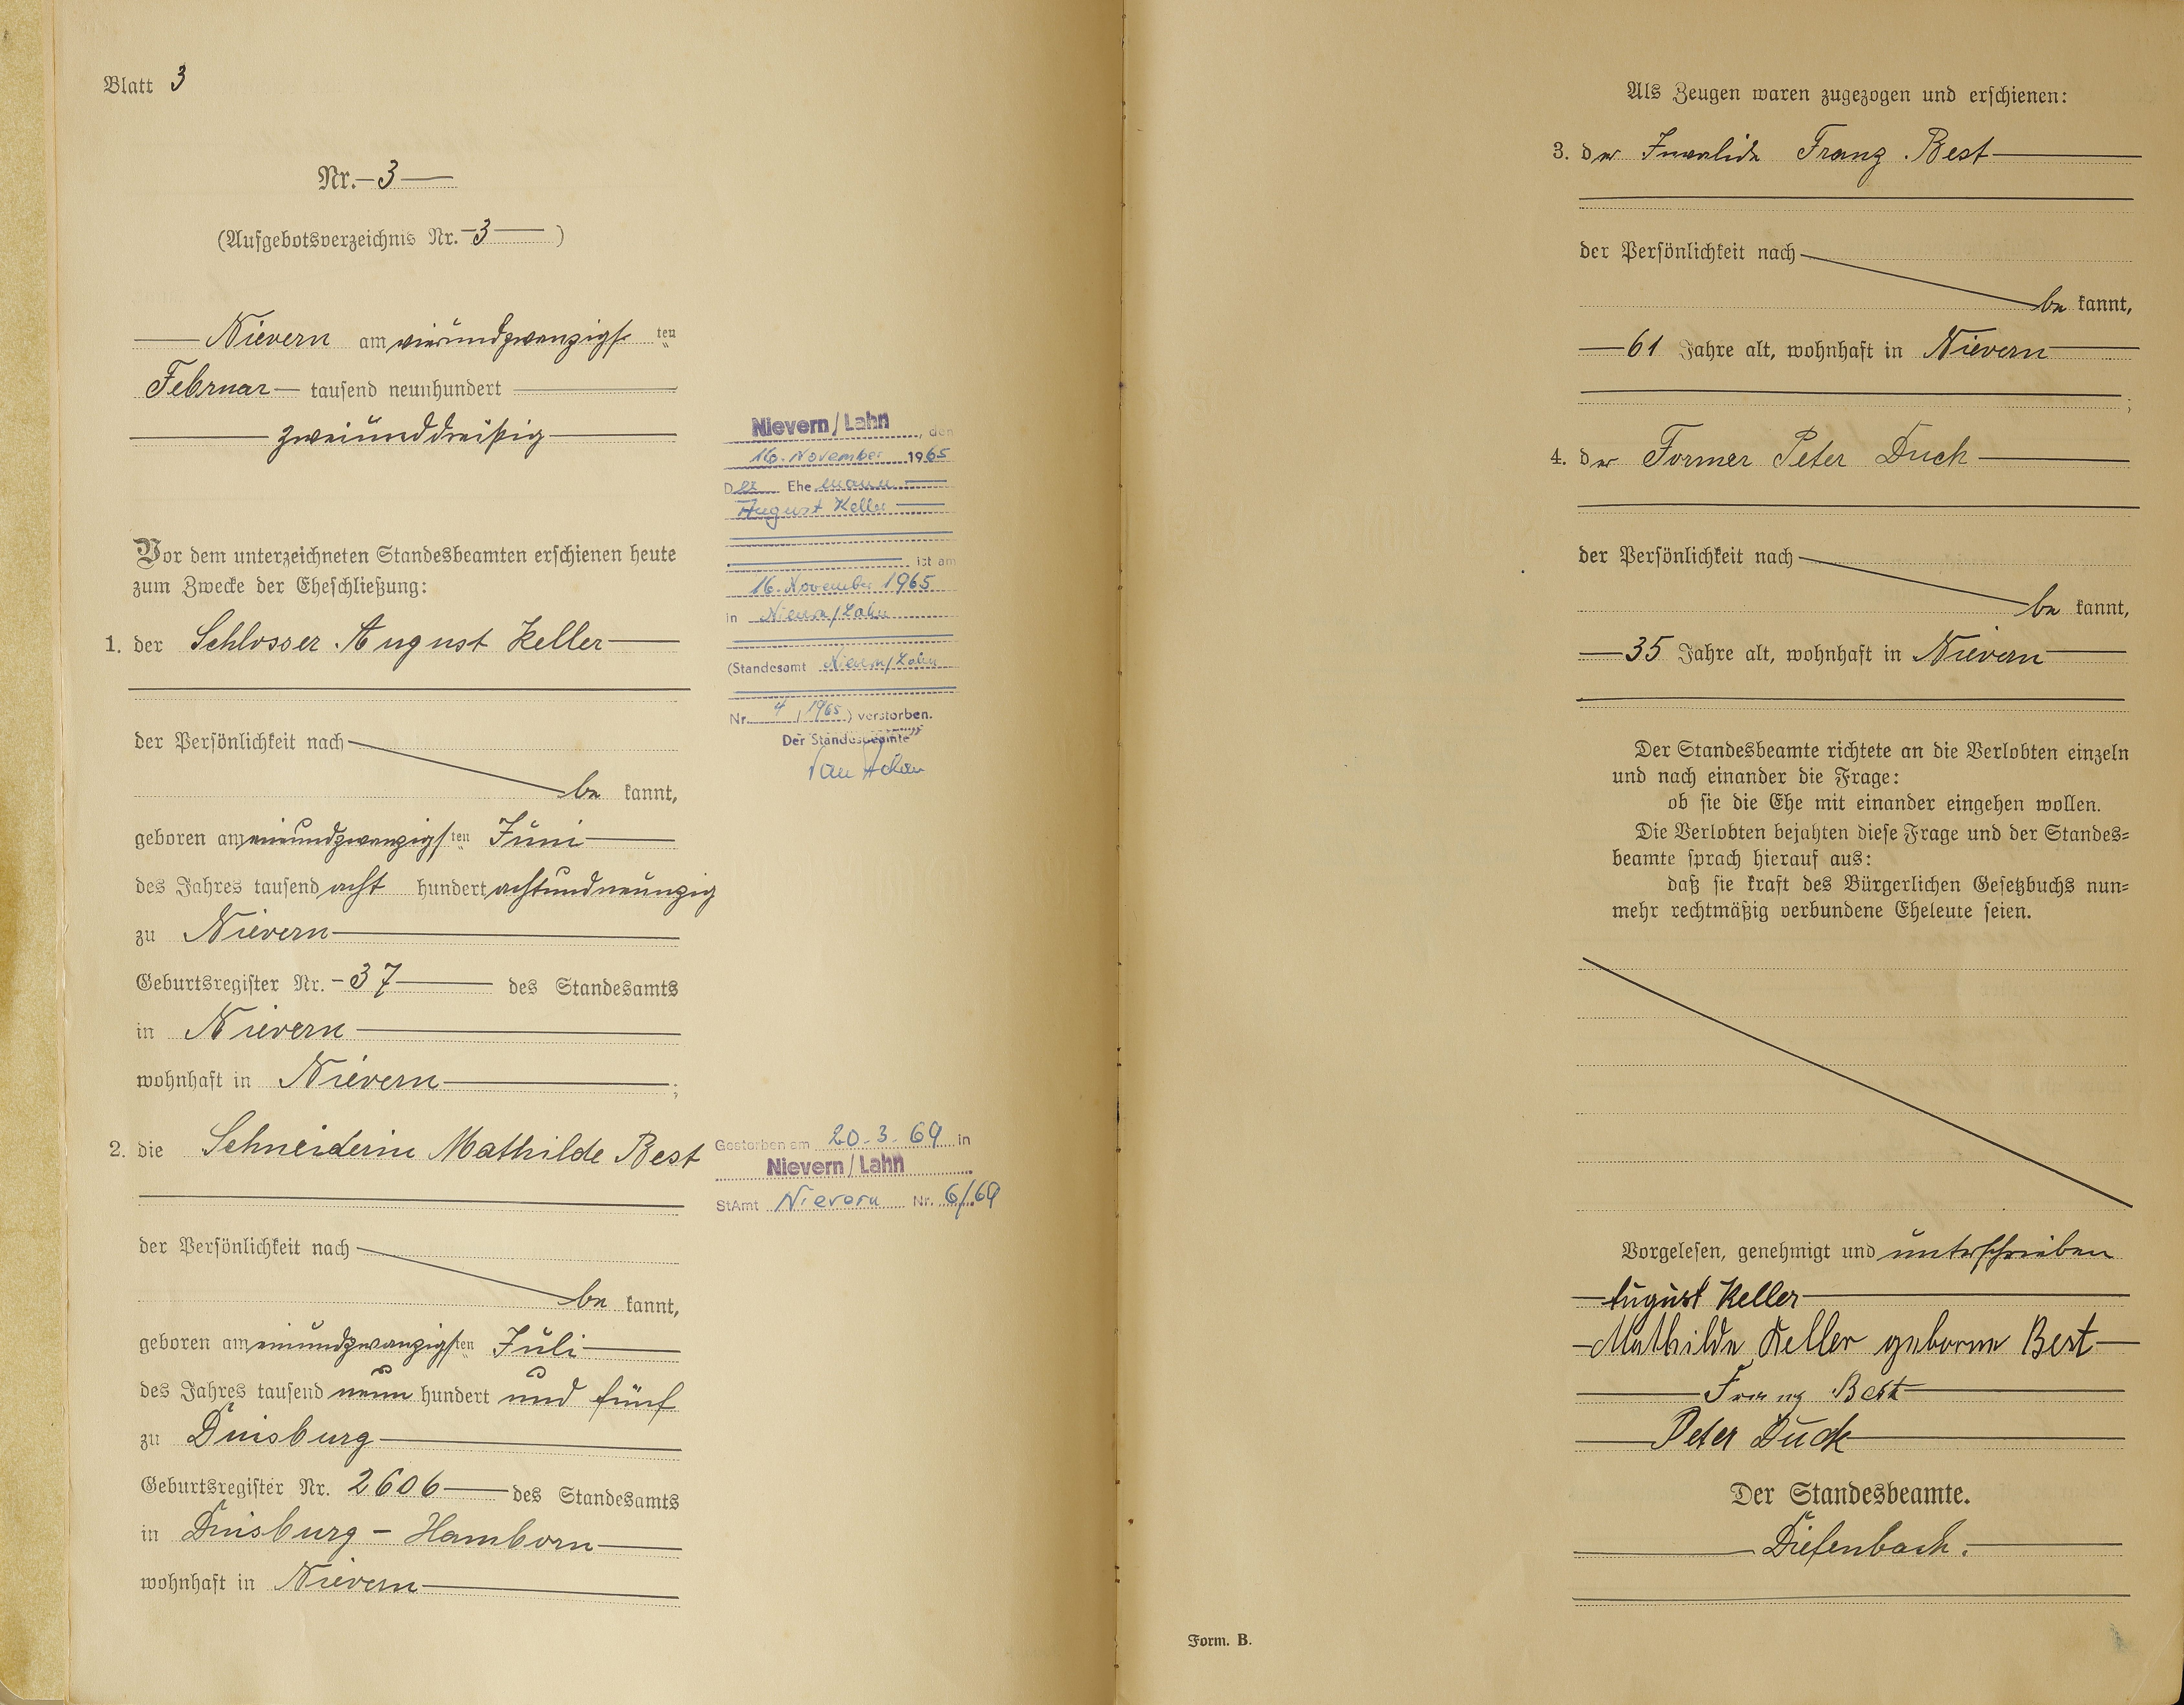 Blatt 3
Nr. 3
(Aufgebotsverzeichnis Nr. 3)
Nievern am vierundzwanzigsten
Februar tausend neunhundert
zweiunddreißig
Vor dem unterzeichneten Standesbeamten erschienen heute
zum Zwecke der Eheschließung:
1. der Schlosser August Keller
der Persönlichkeit nach
be kannt,
geboren am einundzwanzigsten Juni
des Jahres tausend acht hundert achtundneunzig
zu Nievern
Geburtsregister Nr. 37 des Standesamts
in Nievern
wohnhaft in Nievern;
2. die Schneiderin Mathilde Best
der Persönlichkeit nach
be kannt,
geboren am einundzwanzigsten Juli
des Jahres tausend neun hundert und fünf
zu Duisburg
Geburtsregister Nr. 2606 des Standesamts
in Duisburg - Hamborn
wohnhaft in Nievern
Nievern/Lahn, den
16. November 1965
Der Ehemann
August Keller
ist am
16. November 1965
in Nievern/Lahn
(Standesamt Nievern/Lahn
Nr. 4 / 1965) verstorben.
Der Standesbeamte
Gestorben am 20.3.69 in
Nievern/Lahn
StAmt Nievern Nr. 6/69
Als Zeugen waren zugezogen und erschienen:
3. der Invalide Franz Best
der Persönlichkeit nach
be kannt,
61 Jahre alt, wohnhaft in Nievern
;
4. der Former Peter Duch
der Persönlichkeit nach
be kannt,
35 Jahre alt, wohnhaft in Nievern
Der Standesbeamte richtete an die Verlobten einzeln
und nach einander die Frage:
ob sie die Ehe mit einander eingehen wollen.
Die Verlobten bejahten diese Frage und der Standes=
beamte sprach hierauf aus:
daß sie kraft des Bürgerlichen Gesetzbuchs nun=
mehr rechtmäßig verbundene Eheleute seien.
Vorgelesen, genehmigt und unterschrieben
August Keller
Mathilde Keller geborne Best
Franz Best
Peter Duch
Der Standesbeamte.
Diefenbach.
Form. B.